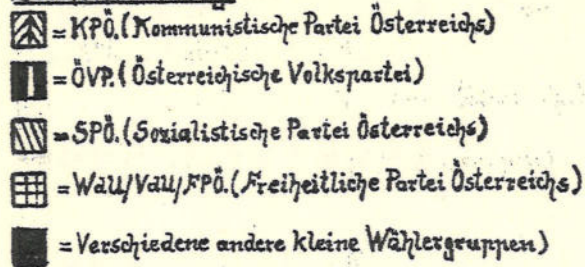 = KPÖ. (Kommunistische Partei Österreichs)
= ÖVP. (Österreichische Volkspartei)
= SPÖ. (Sozialistische Partei Österreichs)
= WdU/VdU/FPÖ. (Freiheitliche Partei Österreichs)
= Verschiedene andere kleine Wählergruppen)